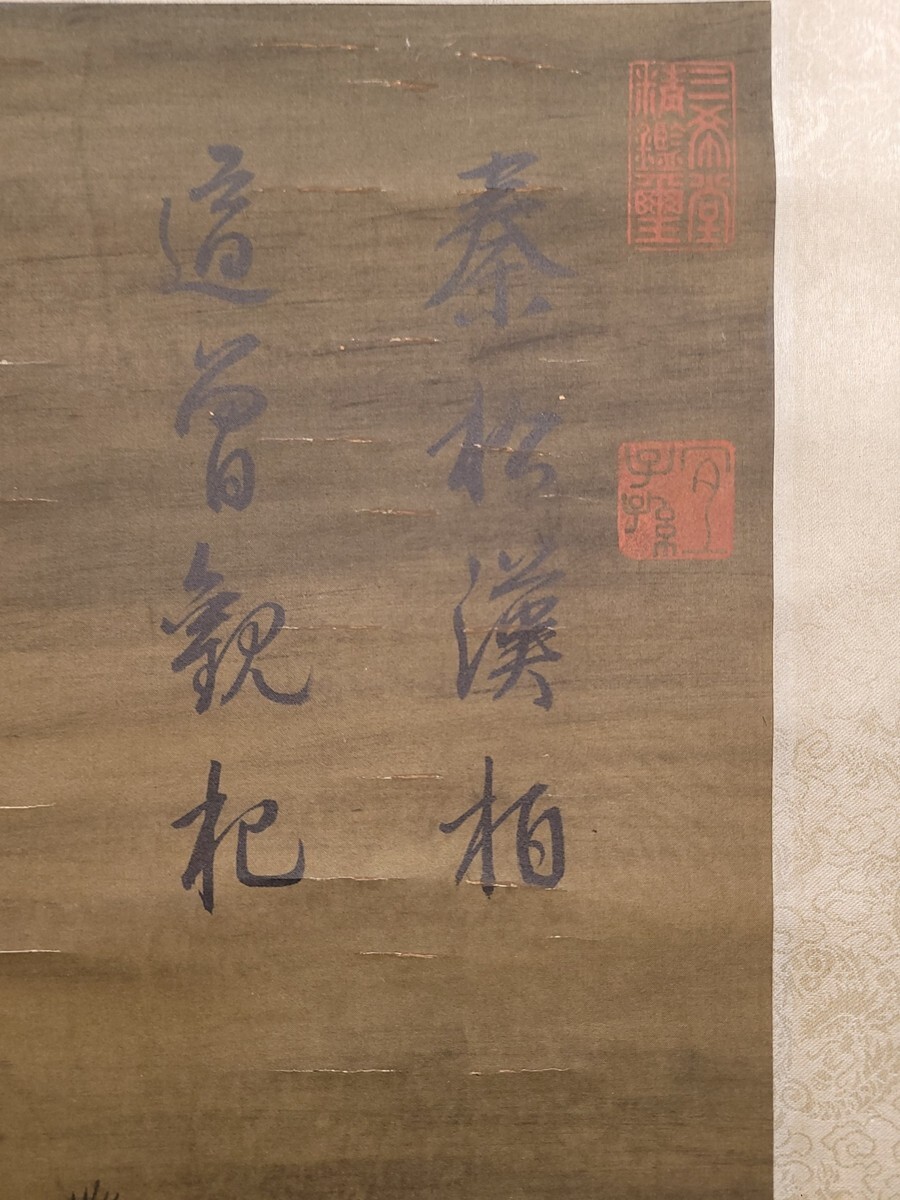 三希堂
精鑑璽
宜
子孫
秦松漢柏
適曾觀杞